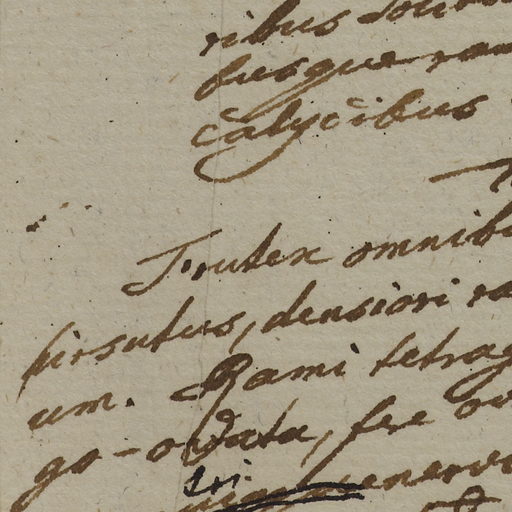 ribus
busque ra
calycibus
Frutex omnib
hirsutus, densiori ra
um. Rami tetrag
go-ovata, fere o
tri
enervi